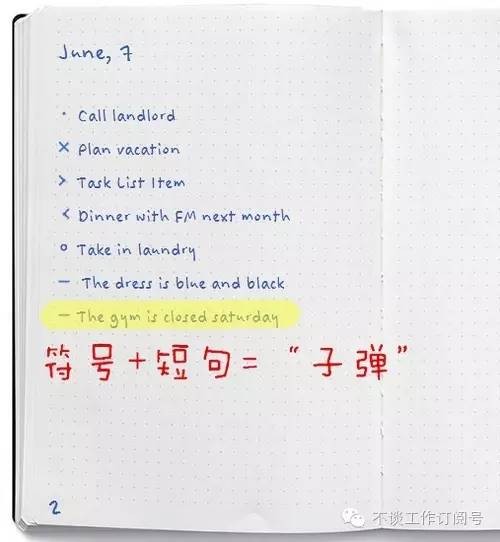 June, 7
· Call landlord
× Plan vacation
> Task List Item
< Dinner with FM next month
o Take in laundry
— The dress is blue and black
— The gym is closed saturday
符号+短句=“子弹”
2
不谈工作订阅号